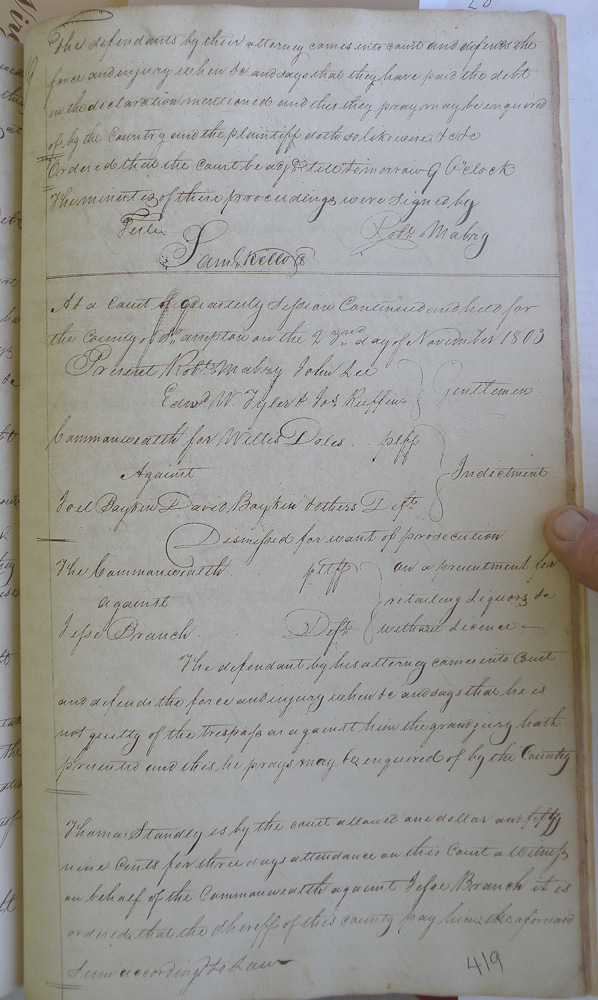 The defendants by their attorney comes into court and defends the
force and injury when &c and says that they have paid the debt
in the declaration mentioned and this they pray may be enquired
of by the Country and the plaintiff doth so likewise &c &c
Ordered that the Court be adjd till tomorrow 9 O'Clock
The minutes of these proceedings were signed by
Teste Robt. Mabry
Saml. Kello
At a Court of Quarterly Session Continued and held for
the County of Southampton on the 23nd day of November 1803
Present Robt. Mabry John Lee
Edwd. W. Tyler & Jos. Ruffin Gentlemen
Commonwealth for Willis Doles pltff
Against Indictment
Joel Baykin David Baykin & others Defts
Dismissed for want of prosecution
The Commonwealth pltff on a presentment for
against retailing Liquors &c
Jesse Branch Deft. without licence
The defendant by his attorney comes into Court
and defends the force and injury when &c and says that he is
not guilty of the trespass as against him the grandjury hath
presented and this he prays may be enquired of by the Country
Thomas Standley is by the court allowed one dollar and fifty
nine Cents for three days attendance on this Court a Witness
on behalf of the Commonwealth against Jesse Branch it is
ordered that the Sheriff of this county pay him the aforesaid
Sum according to Law
419